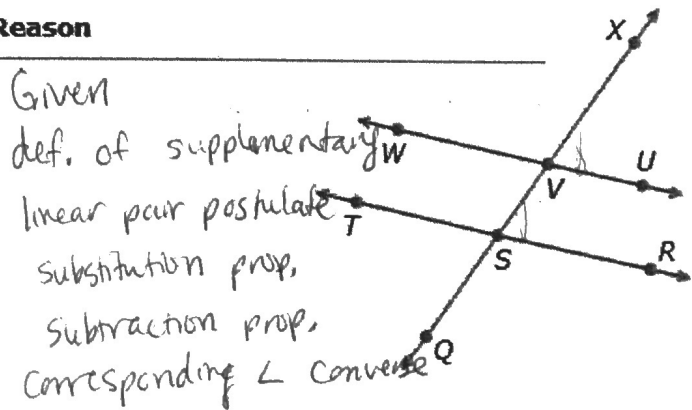 Reason
Given
def. of supplementary
linear pair postulate
substitution prop.
subtraction prop.
Corresponding ∠ Converse
X
W
V
U
T
S
R
Q